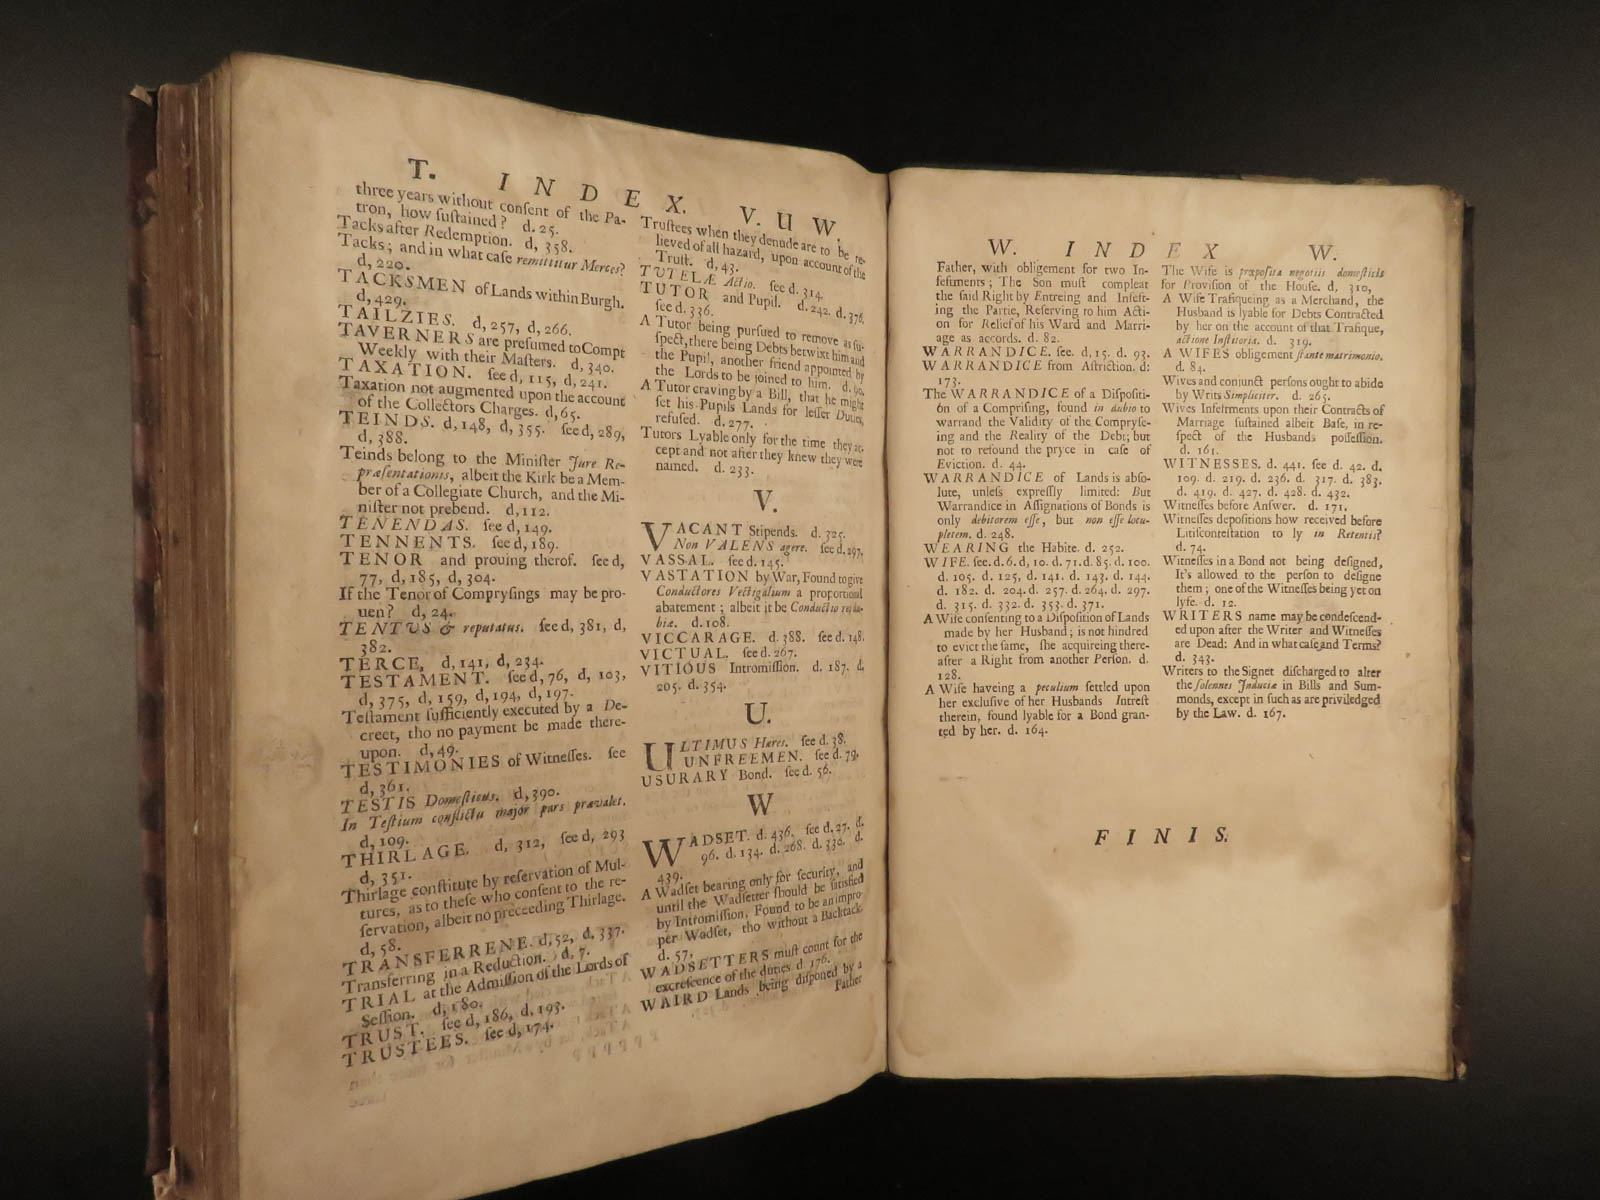 T. INDEX. V. U W.
three years without consent of the Pa-
tron, how ſuſtained? d. 25.
Tacks after Redemption. d, 358.
Tacks; and in what caſe remittitur Merces?
d, 220.
TACKSMEN of Lands within Burgh.
d, 429.
TAILZIES. d, 257, d, 266.
TAVERNERS are preſumed to Compt
Weekly with their Maſters. d, 340.
TAXATION. ſee d, 115, d, 241.
Taxation not augmented upon the account
of the Collectors Charges. d, 65.
TEINDS. d, 148, d, 355. ſee d, 289,
d, 388.
Teinds belong to the Miniſter Jure Re-
præſentationis, albeit the Kirk be a Mem-
ber of a Collegiate Church, and the Mi-
niſter not prebend. d, 112.
TENENDAS. ſee d, 149.
TENNENTS. ſee d, 189.
TENOR and proving therof. ſee d,
77, d, 185, d, 304.
If the Tenor of Compryſings may be pro-
uen? d, 24.
TENTUS & reputatus. ſee d, 381, d,
382.
TERCE, d, 141, d, 234.
TESTAMENT. ſee d, 76, d, 103,
d, 375, d, 159, d, 194, d, 197.
Teſtament ſufficiently executed by a De-
creet, tho no payment be made there-
upon. d, 49.
TESTIMONIES of Witneſſes. ſee
d, 361.
TESTIS Domeſticus. d, 390.
In Teſtium conflictu major pars prævalet.
d, 109.
THIRLAGE. d, 312, ſee d, 293
d, 351.
Thirlage conſtitute by reſervation of Mul-
tures, as to theſe who conſent to the re-
ſervation, albeit no preceeding Thirlage.
d, 58.
TRANSFERRENE. d, 52, d, 337.
Transferring in a Reduction. d, 7.
TRIAL at the Admiſſion of the Lords of
Seſſion. d, 180.
TRUST. ſee d, 186, d, 193.
TRUSTEES. ſee d, 174.
Truſtees when they denude are to be re-
lieved of all hazard, upon account of the
Truſt. d, 43.
TUTELÆ Actio. ſee d. 314.
TUTOR and Pupil. d. 242. d. 376.
ſee d. 336.
A Tutor being purſued to remove as ſu-
ſpect, there being Debts betwixt him and
the Pupil, another friend appointed by
the Lords to be joined to him. d. 90.
A Tutor craving by a Bill, that he might
ſet his Pupils Lands for leſſer Duties,
refuſed. d. 277.
Tutors Lyable only for the time they ac-
cept and not after they knew they were
named. d. 233.
V.
VACANT Stipends. d. 325.
Non VALENS agere. ſee d. 297.
VASSAL. ſee d. 145.
VASTATION by War, Found to give
Conductores Vectigalium a proportional
abatement; albeit it be Conductio rei du-
biæ. d. 108.
VICCARAGE. d. 388. ſee d. 148.
VICTUAL. ſee d. 267.
VITIOUS Intromiſſion. d. 187. d.
205. d. 354.
U.
ULTIMUS Hæres. ſee d. 38.
UNFREEMEN. ſee d. 79.
USURARY Bond. ſee d. 56.
W
WADSET. d. 436. ſee d. 27. d.
96. d. 134. d. 268. d. 330. d.
439.
A Wadſet bearing only for ſecurity, and
until the Wadſetter ſhould be ſatiſfied
by Intromiſſion, Found to be an impro-
per Wadſet, tho without a Backtack.
d. 57.
WADSETTERS muſt count for the
excreſcence of the duties. d. 176.
WAIRD Lands being diſponed by a
Father
W. INDEX W.
Father, with obligement for two In-
feftments; The Son muſt compleat
the ſaid Right by Entreing and Infeft-
ing the Partie, Reſerving to him Acti-
on for Relief of his Ward and Marri-
age as accords. d. 82.
WARRANDICE. ſee. d, 15. d. 93.
WARRANDICE from Aſtriction. d:
173.
The WARRANDICE of a Diſpoſiti-
on of a Compriſing, found in dubio to
warrand the Validity of the Compryſe-
ing and the Reality of the Debt; but
not to refound the pryce in caſe of
Eviction. d. 44.
WARRANDICE of Lands is abſo-
lute, unleſs expreſſly limited: But
Warrandice in Aſſignations of Bonds is
only debitorem eſſe, but non eſſe locu-
pletem. d. 248.
WEARING the Habite. d. 252.
WIFE. ſee. d. 6. d, 10. d. 71. d. 85. d. 100.
d. 105. d. 125, d. 141. d. 143. d. 144.
d. 182. d. 204. d. 257. d. 264. d. 297.
d. 315. d. 332. d. 353. d. 371.
A Wife conſenting to a Diſpoſition of Lands
made by her Huſband; is not hindred
to evict the ſame, ſhe acquireing there-
after a Right from another Perſon. d.
128.
A Wife haveing a peculium ſettled upon
her excluſive of her Husbands Intreſt
therein, found lyable for a Bond gran-
ted by her. d. 164.
The Wife is præpoſita negotiis domeſticis
for Proviſion of the Houſe. d, 310,
A Wife Trafiqueing as a Merchand, the
Husband is lyable for Debts Contracted
by her on the account of that Trafique,
actione Inſtitoria. d. 319.
A WIFES obligement ſtante matrimonio.
d. 84.
Wives and conjunct perſons ought to abide
by Writs Simpliciter. d. 265.
Wives Infeftments upon their Contracts of
Marriage ſuſtained albeit Baſe, in re-
ſpect of the Husbands poſſeſſion.
d. 161.
WITNESSES. d. 441. ſee d. 42. d.
109. d. 219. d. 236. d. 317. d. 383.
d. 419. d. 427. d. 428. d. 432.
Witneſſes before Anſwer. d. 171.
Witneſſes depoſitions how received before
Litiſconteſtation to ly in Retentis?
d. 74.
Witneſſes in a Bond not being deſigned,
It's allowed to the perſon to deſigne
them; one of the Witneſſes being yet on
lyfe. d. 12.
WRITERS name may be condeſcend-
ed upon after the Writer and Witneſſes
are Dead: And in what caſe and Terms?
d. 343.
Writers to the Signet diſcharged to alter
the ſolennes Induciæ in Bills and Sum-
monds, except in ſuch as are priviledged
by the Law. d. 167.
FINIS.